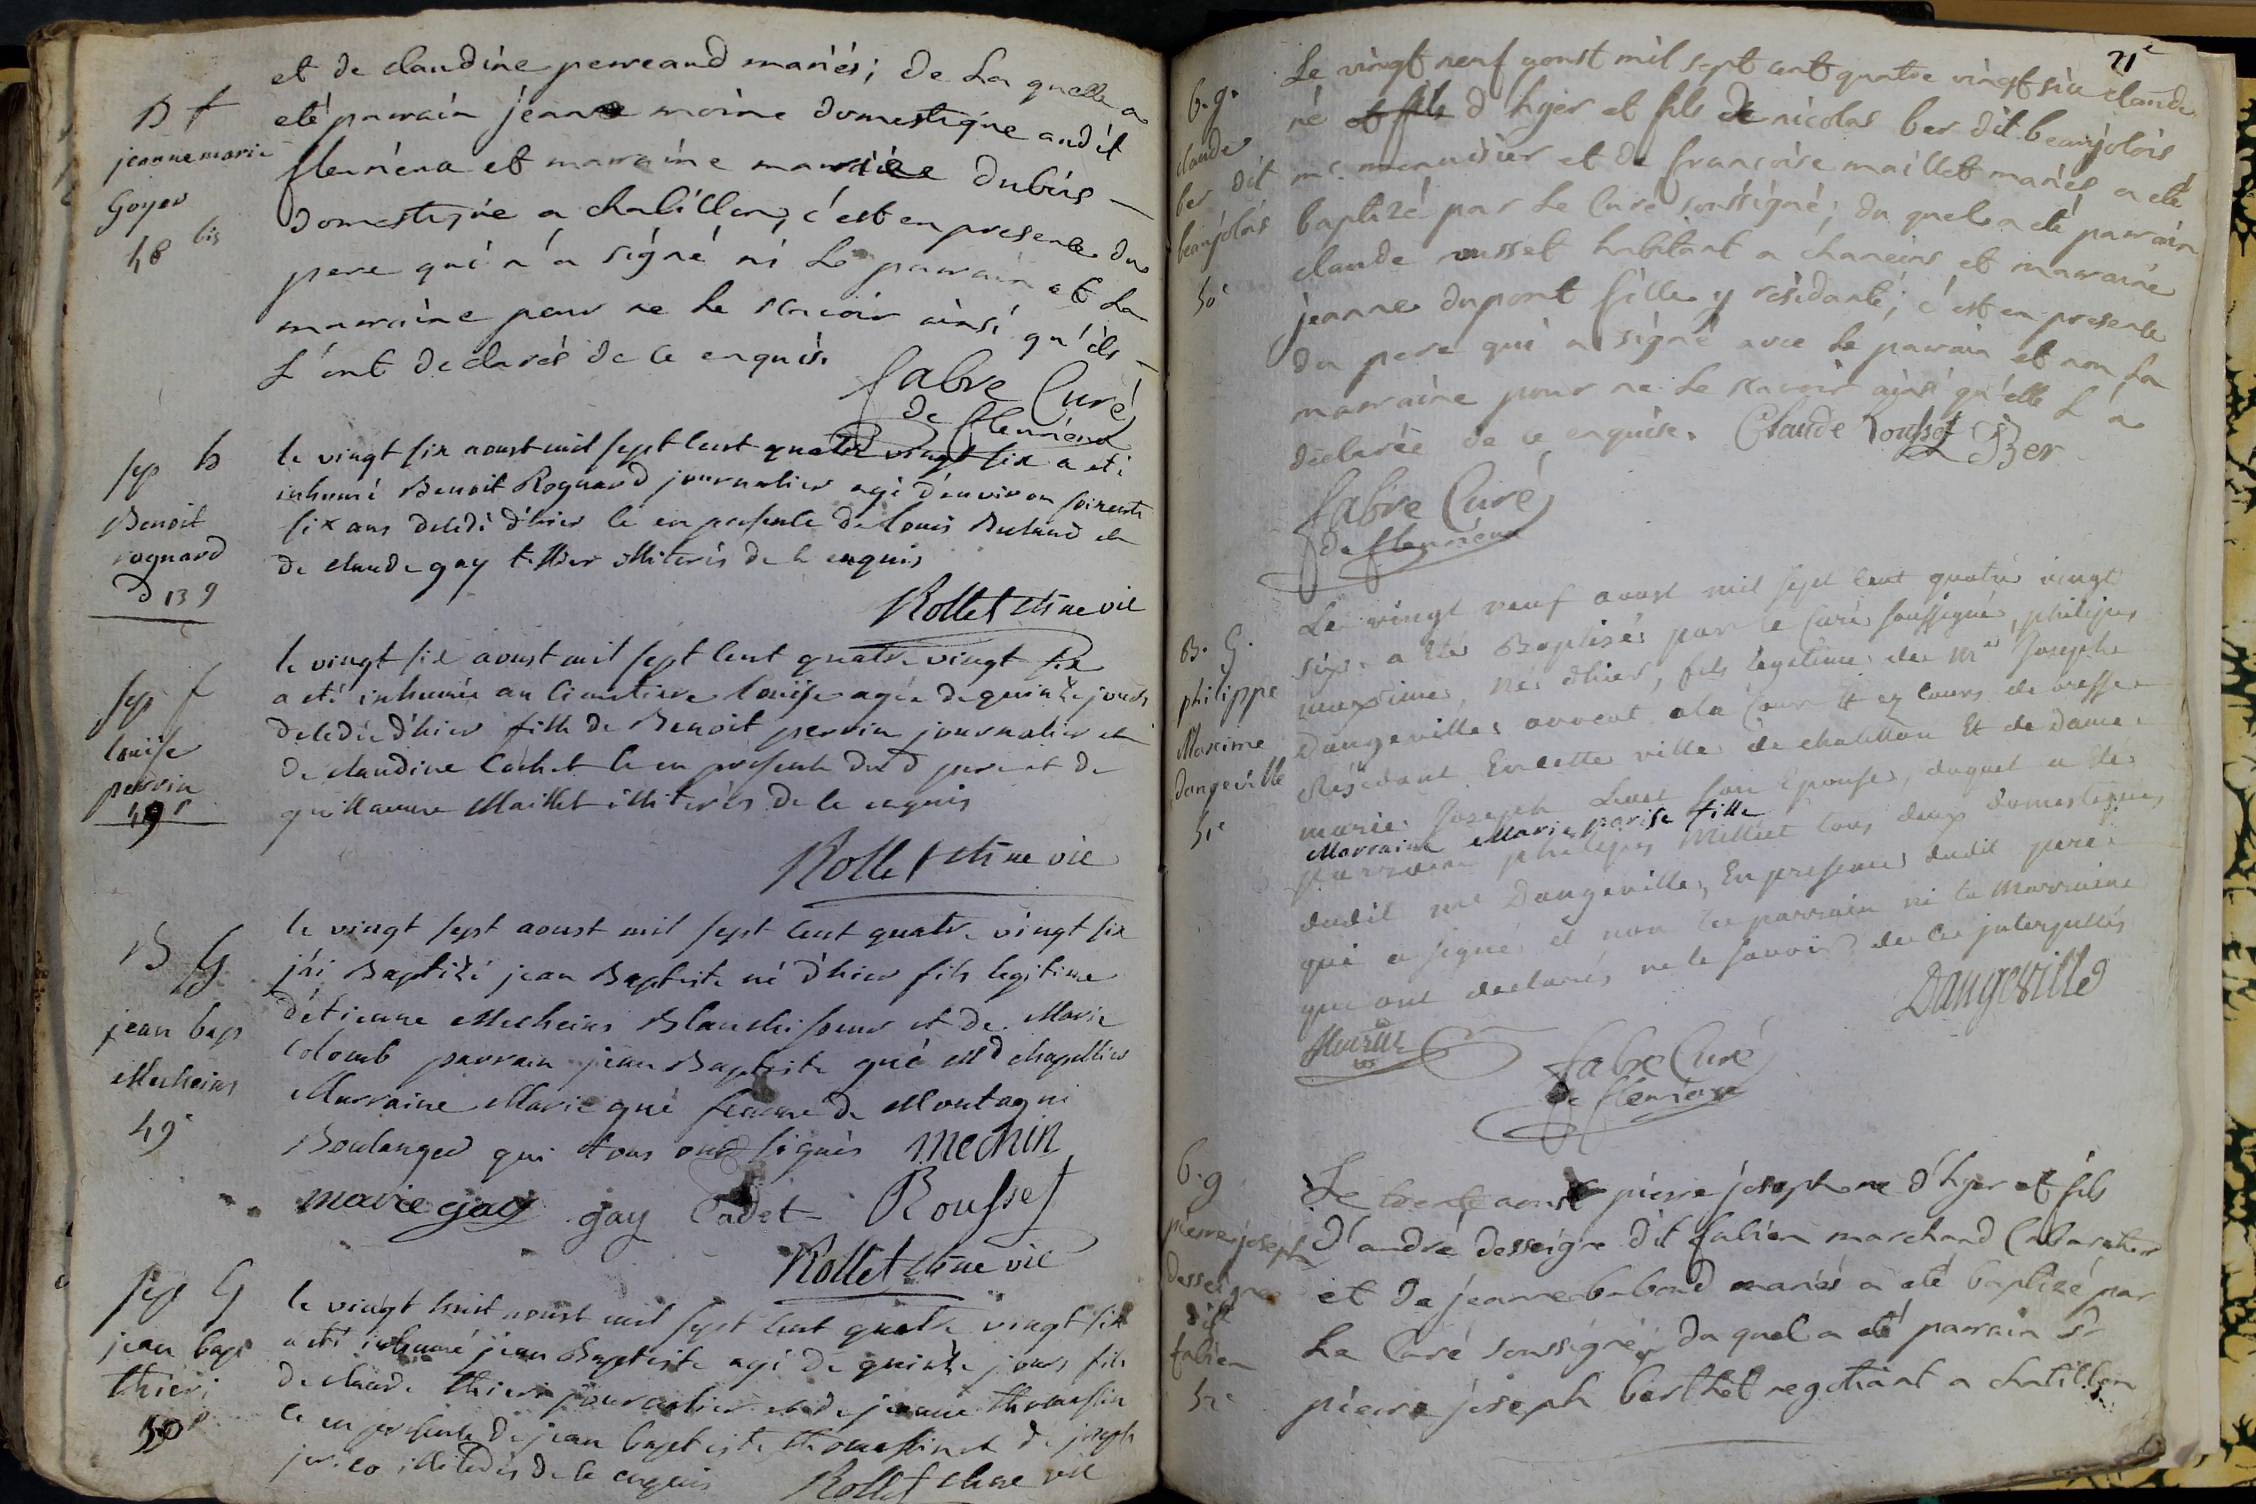 B f
jeanne marie
Goyer
48 bis
et de claudine perreaud mariés; de La quelle a
eté parrain jeanne moine domestique audit
fleurieux et marraine mariée Dubois —
domestique a chatillon, c'est en presence du
pere qui n'a signé ni Le parrain et La
marraine pour ne Le scavoir ainsi qu'ils —
L'ont declarés de ce enquis.
fabre Curé
de fleurieux
sep h
Benoit
rognard
d 139
le vingt six aoust mil sept cent quatre vingt six a eté
inhumé Benoit Rognard journalier agé d'environ soixante
six ans dcdé d'hier ce en presence de Louis Buland et
de claude gay tissier illiterés de ce enquis
Rollet chne vic
sep f
louise
perrin
49e
le vingt six aoust mil sept cent quatre vingt six
a eté inhumée au cimetiere louise agée de quinze jours
dcdée d'hier fille de Benoit perrin journalier et
de claudine Cochet ce en presence dud pere et de
guillaume Maillet illiterés de ce enquis
Rollet chne vic
B G
jean bap
Mecheins
49e
le vingt sept aoust mil sept cent quatre vingt six
j'ai Baptizé jean Baptiste né d'hier fils legitime
d'étienne Mecheins Blanchisseur et de Marie
Colomb parrain jean Baptiste gué Md chapellier
Marraine Marie gué femme de Montagni
Boulanger qui tous ont signés mechin
marie gay gay Cadet Rousset
Rollet chne vic
sep G
jean bap
thieri
50e
le vingt huit aoust mil sept cent quatre vingt six
a eté inhumé jean Baptiste agé de quinze jours fils
de claude thieri journalier et de jeanne thomassin
ce en presence de jean baptiste thomassin et de joseph
illiterés de ce enquis Rollet chne vic
71e
b. g.
claude
ber dit
beaujolois
50e
Le vingt neuf aoust mil sept cent quatre vingt six claude
né et fils d'hyer et fils de nicolas ber dit beaujolois
me. menuisier et de françoise maillet mariés a eté
baptizé par Le Curé soussigné; du quel a eté parrain
claude rousset habitant a chaneins et marraine
jeanne dupont fille y residante; c'est en presence
du pere qui a signé avec Le parrain et non La
marraine pour ne Le scavoir ainsi qu'elle L'a
declarée de ce enquise. Claude Rousset Ber
fabre Curé
de fleurieux
B. G.
philippe
Maxime
dangeville
51e
Le vingt neuf aoust mil sept cent quatre vingt
six. a été Baptisé par le Curé soussigné, philipes
maxime, né d'hier, fils legitime de Me Joseph
Dangeville avocat a la Cour Et ez Cours de bresse
Résidant En cette ville de chatillon Et de Dame
marie Joseph son Epouse, duquel a été
Marraine Marie parise fille
parrain philipes Milliet tous deux domestiques
dudit me Dangeville, En presence dudit pere
qui a signé et non le parrain ni la Marraine
qui ont declarés ne le savoir de ce interpellés
Dangeville
fabre Curé
de fleurieux
b. g
pierre joseph
desseigne
dit
fabien
52e
Le trente aoust pierre joseph né d'hyer et fils
D'andré desseigne dit fabien marchand Cabaretier
et de jeanne babond mariés a eté baptizé par
Le Curé soussigné, du quel a eté parrain Sr
pierre joseph berthet negotiant a chatillon